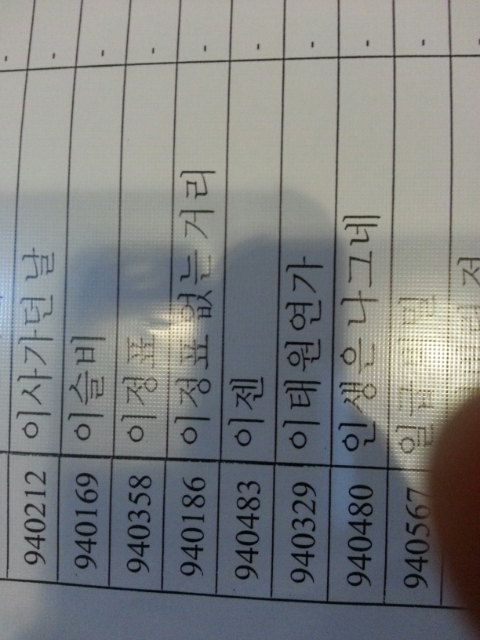 940212 이사가던날 -
940169 이슬비 -
940358 이정표 -
940186 이정표 없는 거리 -
940483 이젠 -
940329 이태원연가 -
940480 인생은 나그네 -
940567 일급비밀 -